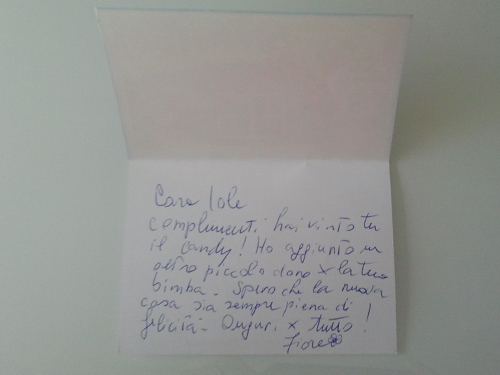 Cara Iole
complimenti hai vinto tu
il candy! Ho aggiunto un
altro piccolo dono x la tua
bimba. Spero che la nuova
casa sia sempre piena di
felicità - Auguri x tutto!
Fiore